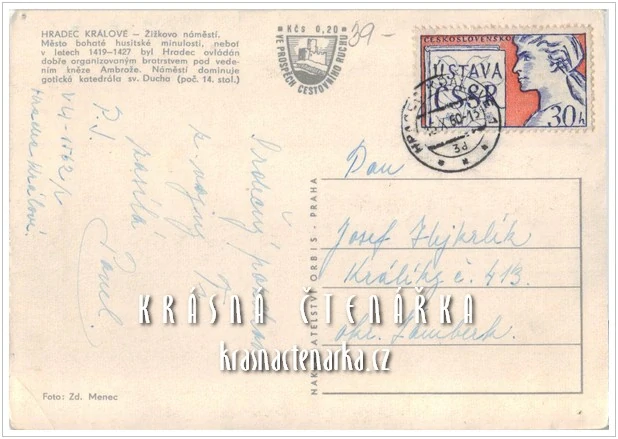 HRADEC KRÁLOVÉ – Žižkovo náměstí.
Město bohaté husitské minulosti, neboť
v letech 1419–1427 byl Hradec ovládán
dobře organizovaným bratrstvem pod vede-
ním kněze Ambrože. Náměstí dominuje
gotická katedrála sv. Ducha (poč. 14. stol.)
Kčs 0,20
VE PROSPĚCH CESTOVNÍHO RUCHU
39-
ČESKOSLOVENSKO
ÚSTAVA
ČSSR
30h
HRADEC KRÁLOVÉ
X 60-15
3d
Srdečný pozdrav
posílá
Pavel.
P.S.
Hradec Králové.
Pan
Josef Hejkrlík
Králíky č. 413.
okr. Žamberk.
NAKLADATELSTVÍ ORBIS - PRAHA
KRÁSNÁ ČTENÁŘKA
krasnactenarka.cz
Foto: Zd. Menec